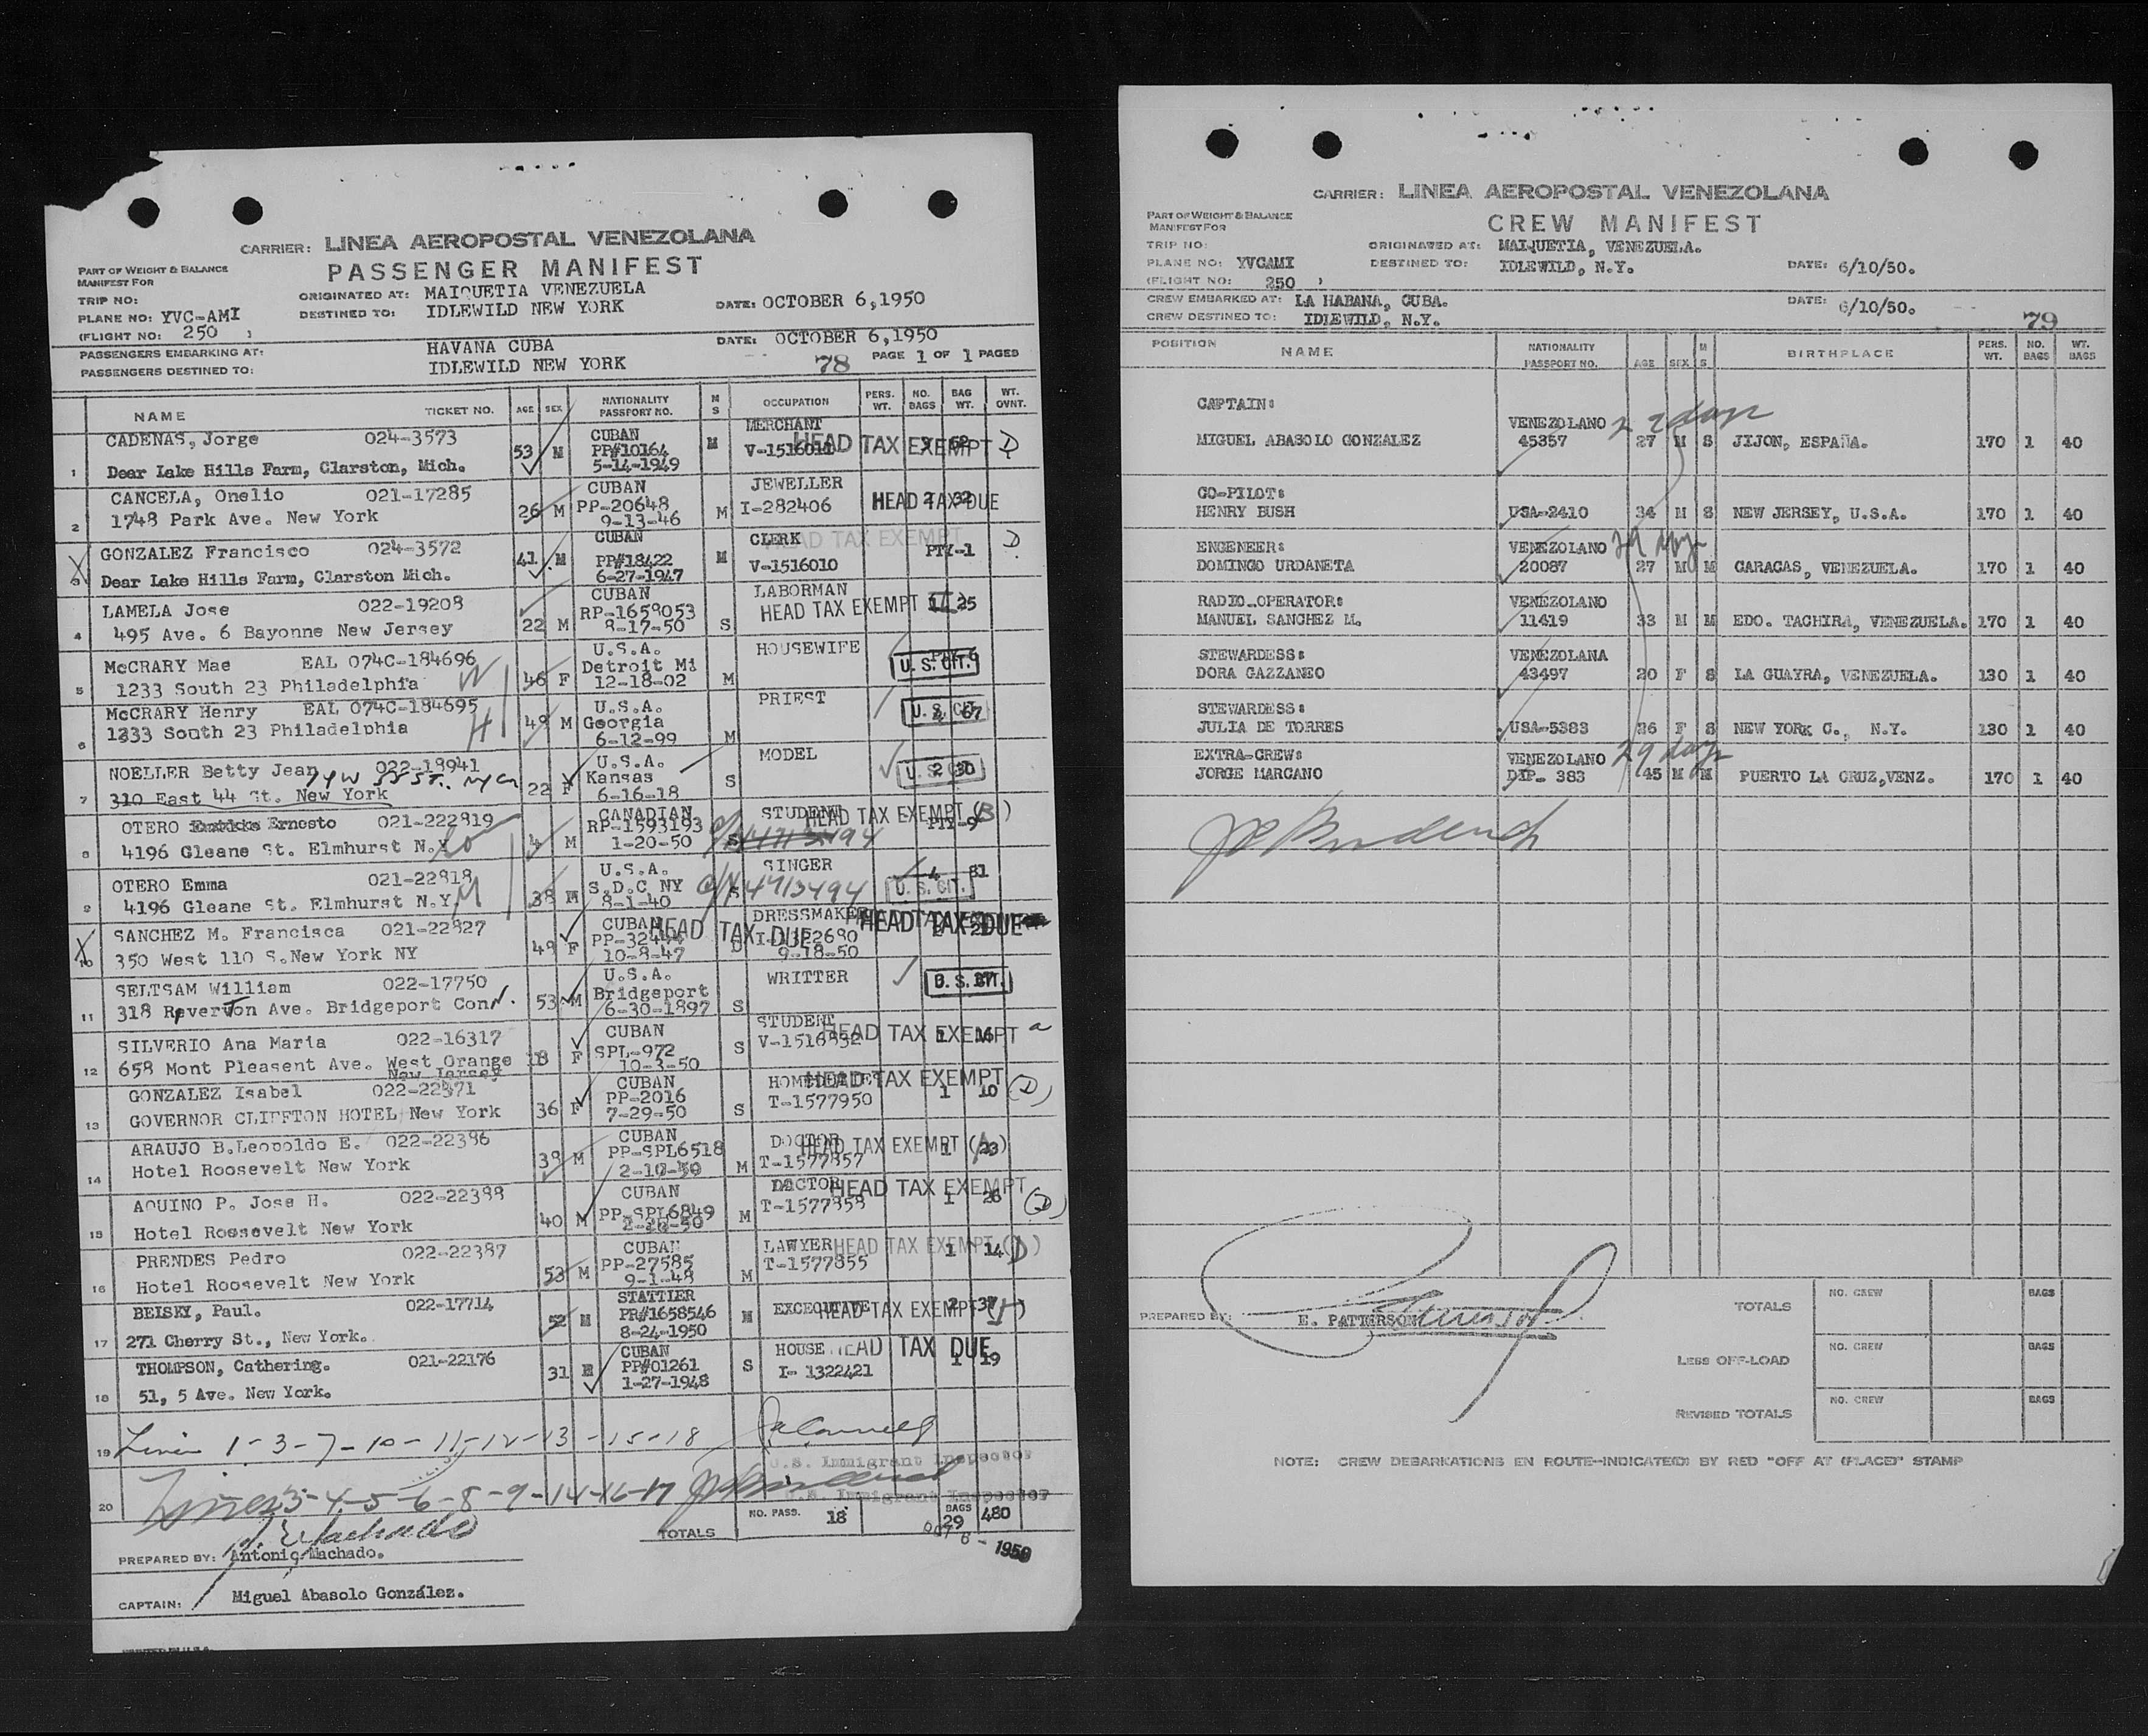 CARRIER: LINEA AEROPOSTAL VENEZOLANA
PASSENGER MANIFEST
PART OF WEIGHT & BALANCE
MANIFEST FOR
TRIP NO:
ORIGINATED AT: MAIQUETIA VENEZUELA
PLANE NO: YVC-AMI
DESTINED TO: IDLEWILD NEW YORK
DATE: OCTOBER 6,1950
(FLIGHT NO: 250 )
PASSENGERS EMBARKING AT: HAVANA CUBA
DATE: OCTOBER 6,1950
PASSENGERS DESTINED TO: IDLEWILD NEW YORK
78 PAGE 1 OF 1 PAGES
NAME TICKET NO. AGE SEX NATIONALITY PASSPORT NO. M S OCCUPATION PERS. WT. NO. BAGS BAG WT. WT. OVNT.
CADENAS, Jorge 024-3573 CUBAN MERCHANT
1 53 M PP#10164 M V-1516011 HEAD TAX EXEMPT D
Dear Lake Hills Farm, Clarston, Mich. 5-14-1949
CANCELA, Onelio 021-17285 CUBAN JEWELLER
2 1748 Park Ave. New York 26 M PP-20648 M I-282406 HEAD TAX DUE 2 32
9-13-46
GONZALEZ Francisco 024-3572 CUBAN CLERK HEAD TAX EXEMPT D
3 41 M PP#18422 M V-1516010 PTY-1
Dear Lake Hills Farm, Clarston Mich. 6-27-1947
LAMELA Jose 022-19208 CUBAN LABORMAN
4 495 Ave. 6 Bayonne New Jersey 22 M RP-1659053 S HEAD TAX EXEMPT 1 25
8-17-50
McCRARY Mae EAL 074C-184696 U.S.A. HOUSEWIFE
5 1233 South 23 Philadelphia 46 F Detroit Mi M U. S. CIT.
12-18-02
McCRARY Henry EAL 074C-184695 U.S.A. PRIEST
6 1233 South 23 Philadelphia 49 M Georgia M U. S. CIT. 67
6-12-99
NOELLER Betty Jean 022-18941 U.S.A. MODEL
7 310 East 44 St. New York 22 F Kansas S U. S. CIT. 2 30
6-16-18
OTERO Ernesto 021-222819 CANADIAN STUDENT HEAD TAX EXEMPT (B)
8 4196 Gleane St. Elmhurst N.Y. 4 M RP-1593193 S PTY-9
1-20-50
OTERO Emma 021-22818 U.S.A. SINGER
9 4196 Gleane St. Elmhurst N.Y. 38 S.D.C NY S 4713494 4 81 U. S. CIT.
8-1-40
SANCHEZ M. Francisca 021-22827 CUBAN DRESSMAKER HEAD TAX DUE
10 350 West 110 S.New York NY 49 F HEAD TAX DUE D
10-8-47 9-18-50
SELTSAM William 022-17750 U.S.A. WRITTER
11 318 Ave. Bridgeport Conn. 53 M Bridgeport S U. S. CIT.
6-30-1897
SILVERIO Ana Maria 022-16317 CUBAN STUDENT HEAD TAX EXEMPT a
12 658 Mont Pleasent Ave. West Orange 18 F SPL-972 S V-1516832 1 16
New Jersey 10-3-50
GONZALEZ Isabel 022-22371 CUBAN HEAD TAX EXEMPT
13 GOVERNOR CLIFFTON HOTEL New York 36 F PP-2016 S T-1577950 1 10 (D)
7-29-50
ARAUJO B.Leopoldo E. 022-22386 CUBAN DOCTOR HEAD TAX EXEMPT
14 Hotel Roosevelt New York 39 M PP-SPL6518 M T-1577857 1 23
2-10-50
AQUINO P. Jose H. 022-22388 CUBAN DOCTOR HEAD TAX EXEMPT
15 Hotel Roosevelt New York 40 M PP-SPL6849 M T-1577858 1 26 (D)
PRENDES Pedro 022-22387 CUBAN LAWYER HEAD TAX EXEMPT
16 Hotel Roosevelt New York 53 M PP-27585 M T-1577855 1 14 (D)
9-1-48
BEISKY, Paul. 022-17714 STATTIER EXCECUTIVE HEAD TAX EXEMPT
17 271 Cherry St., New York. 52 M PR#1658546 M 2 37
8-24-1950
THOMPSON, Cathering. 021-22176 CUBAN HOUSE HEAD TAX DUE
18 51, 5 Ave. New York. 31 PP#01261 S I- 1322421 1 19
1-27-1948
19 Lines 1-3-7-10-11-12-13-15-18
U.S. Immigrant Inspector
20 Lines 3-4-5-6-8-9-14-16-17
U.S. Immigrant Inspector
TOTALS NO. PASS. 18 BAGS 29 480
OCT 6 - 1950
PREPARED BY: Antonio Machado.
CAPTAIN: Miguel Abasolo González.
CARRIER: LINEA AEROPOSTAL VENEZOLANA
CREW MANIFEST
PART OF WEIGHT & BALANCE
MANIFEST FOR
TRIP NO:
ORIGINATED AT: MAIQUETIA, VENEZUELA.
PLANE NO: YVCAMI
DESTINED TO: IDLEWILD, N.Y.
DATE: 6/10/50.
(FLIGHT NO: 250 )
CREW EMBARKED AT: LA HABANA, CUBA.
DATE: 6/10/50.
CREW DESTINED TO: IDLEWILD, N.Y.
79
POSITION NAME NATIONALITY PASSPORT NO. AGE SEX M S BIRTHPLACE PERS. WT. NO. BAGS WT. BAGS
CAPTAIN: VENEZOLANO 29 days
MIGUEL ABASOLO GONZALEZ 45357 27 M S JIJON, ESPAÑA. 170 1 40
CO-PILOT:
HENRY BUSH USA-2410 34 M S NEW JERSEY, U.S.A. 170 1 40
ENGENEER: VENEZOLANO 29 days
DOMINGO URDANETA 20087 27 M M CARACAS, VENEZUELA. 170 1 40
RADIO-OPERATOR: VENEZOLANO
MANUEL SANCHEZ M. 11419 33 M M EDO. TACHIRA, VENEZUELA. 170 1 40
STEWARDESS: VENEZOLANA
DORA GAZZANEO 43497 20 F S LA GUAYRA, VENEZUELA. 130 1 40
STEWARDESS:
JULIA DE TORRES USA-5383 36 F S NEW YORK C., N.Y. 130 1 40
EXTRA-CREW: VENEZOLANO 29 days
JORGE MARCANO DIP- 383 45 M M PUERTO LA CRUZ,VENZ. 170 1 40
PREPARED BY: E. PATTERSON
TOTALS NO. CREW BAGS
LESS OFF-LOAD NO. CREW BAGS
REVISED TOTALS NO. CREW BAGS
NOTE: CREW DEBARKATIONS EN ROUTE-INDICATED BY RED "OFF AT (PLACE)" STAMP